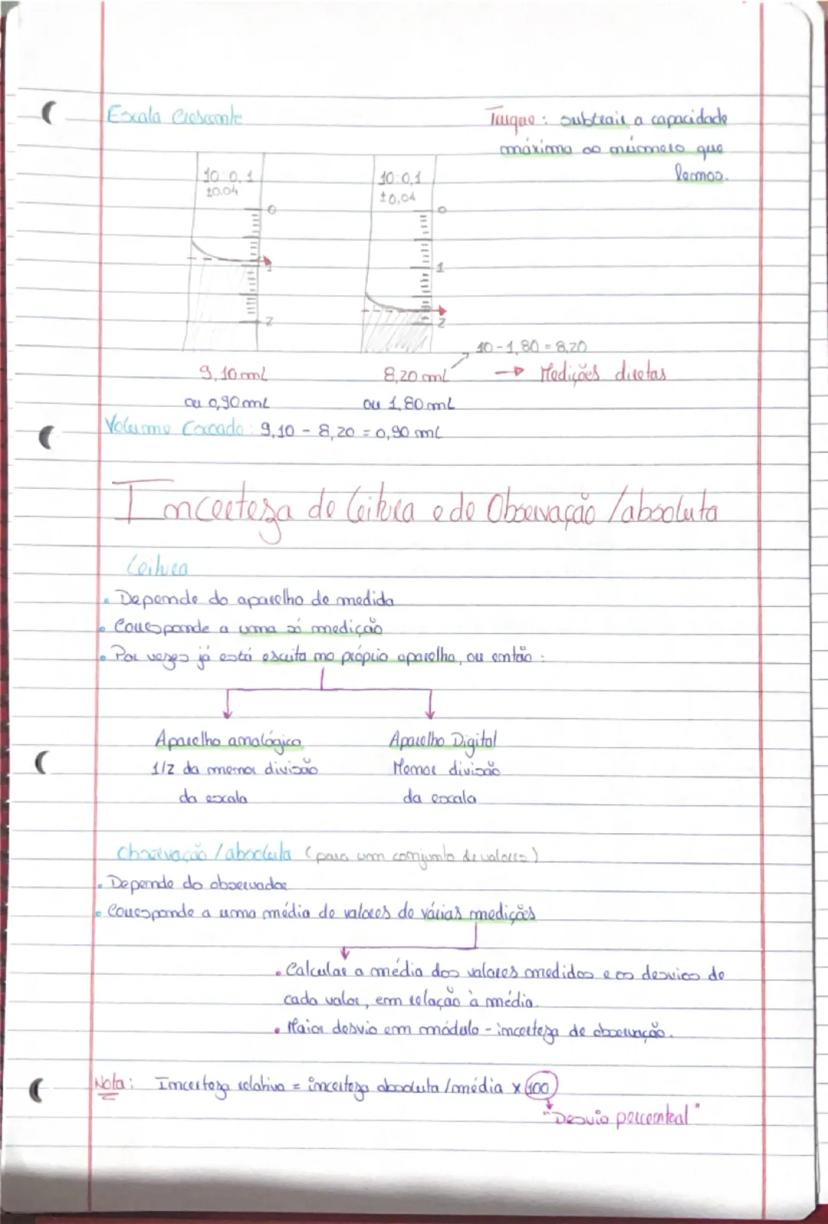 Escala Crescente
Truque: subtrair a capacidade
máxima ao número que
lermos.
10:0,1
±0.04
0
1
2
10:0,1
±0,04
0
1
2
10-1,80=8,20
9,10mL
8,20mL → Medições diretas
ou 0,90mL
ou 1,80mL
Volume Escoado: 9,10 - 8,20 = 0,90 mL
Incerteza de leitura e de Observação/absoluta
Leitura
• Depende do aparelho de medida
• Corresponde a uma só medição
• Por vezes já está escrita no próprio aparelho, ou então:
Aparelho analógico
1/2 da menor divisão
da escala
Aparelho Digital
Menor divisão
da escala
Observação/absoluta (para um conjunto de valores)
• Depende do observador
• Corresponde a uma média de valores de várias medições
• Calcular a média dos valores medidos e os desvios de
cada valor, em relação à média.
• Maior desvio em módulo - incerteza de observação.
Nota: Incerteza relativa = incerteza absoluta/média x 100
"Desvio percentual"